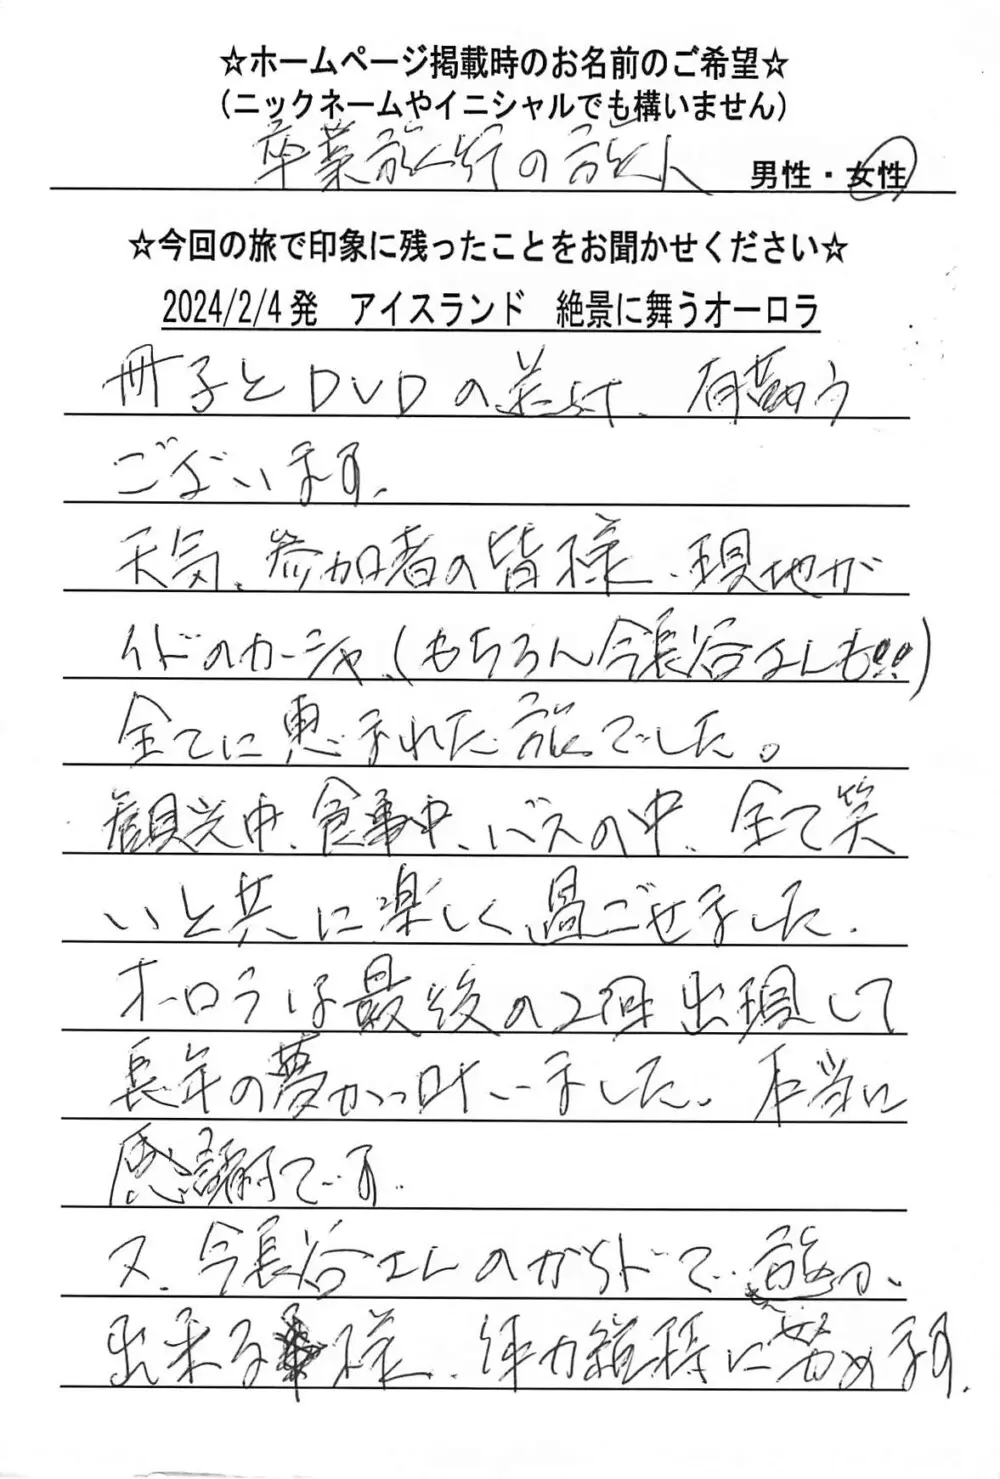 ☆ホームページ掲載時のお名前のご希望☆
(ニックネームやイニシャルでも構いません)
卒業旅行の旅人 男性・女性
☆今回の旅で印象に残ったことをお聞かせください☆
2024/2/4発 アイスランド 絶景に舞うオーロラ
冊子とDVDの送付、有難う
ございます。
天気、参加者の皆様、現地ガ
イドのカーシャ、(もちろん今長谷さんも!!)
全てに恵まれた旅でした。
観光中、食事中、バスの中、全て笑
いと共に楽しく過ごせました。
オーロラは最後の2回出現して
長年の夢がつ叶いました。本当に
感謝です。
又、今長谷さんのガイドで、旅が
出来る様、体力維持に努めます。